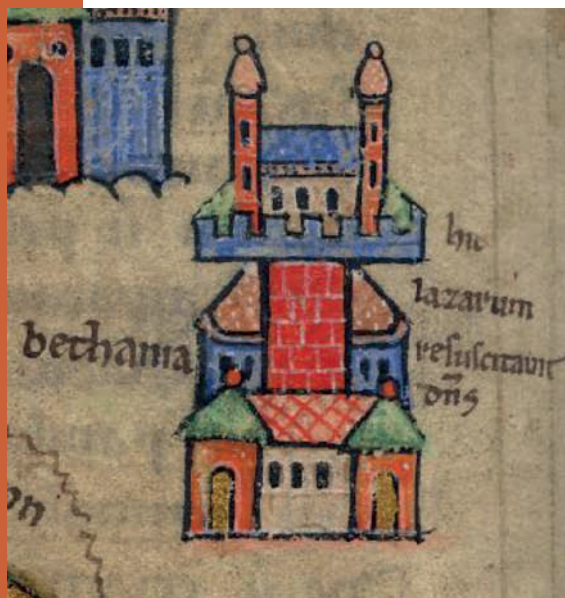 bethania
hic
lazarum
resuscitavit
dñs